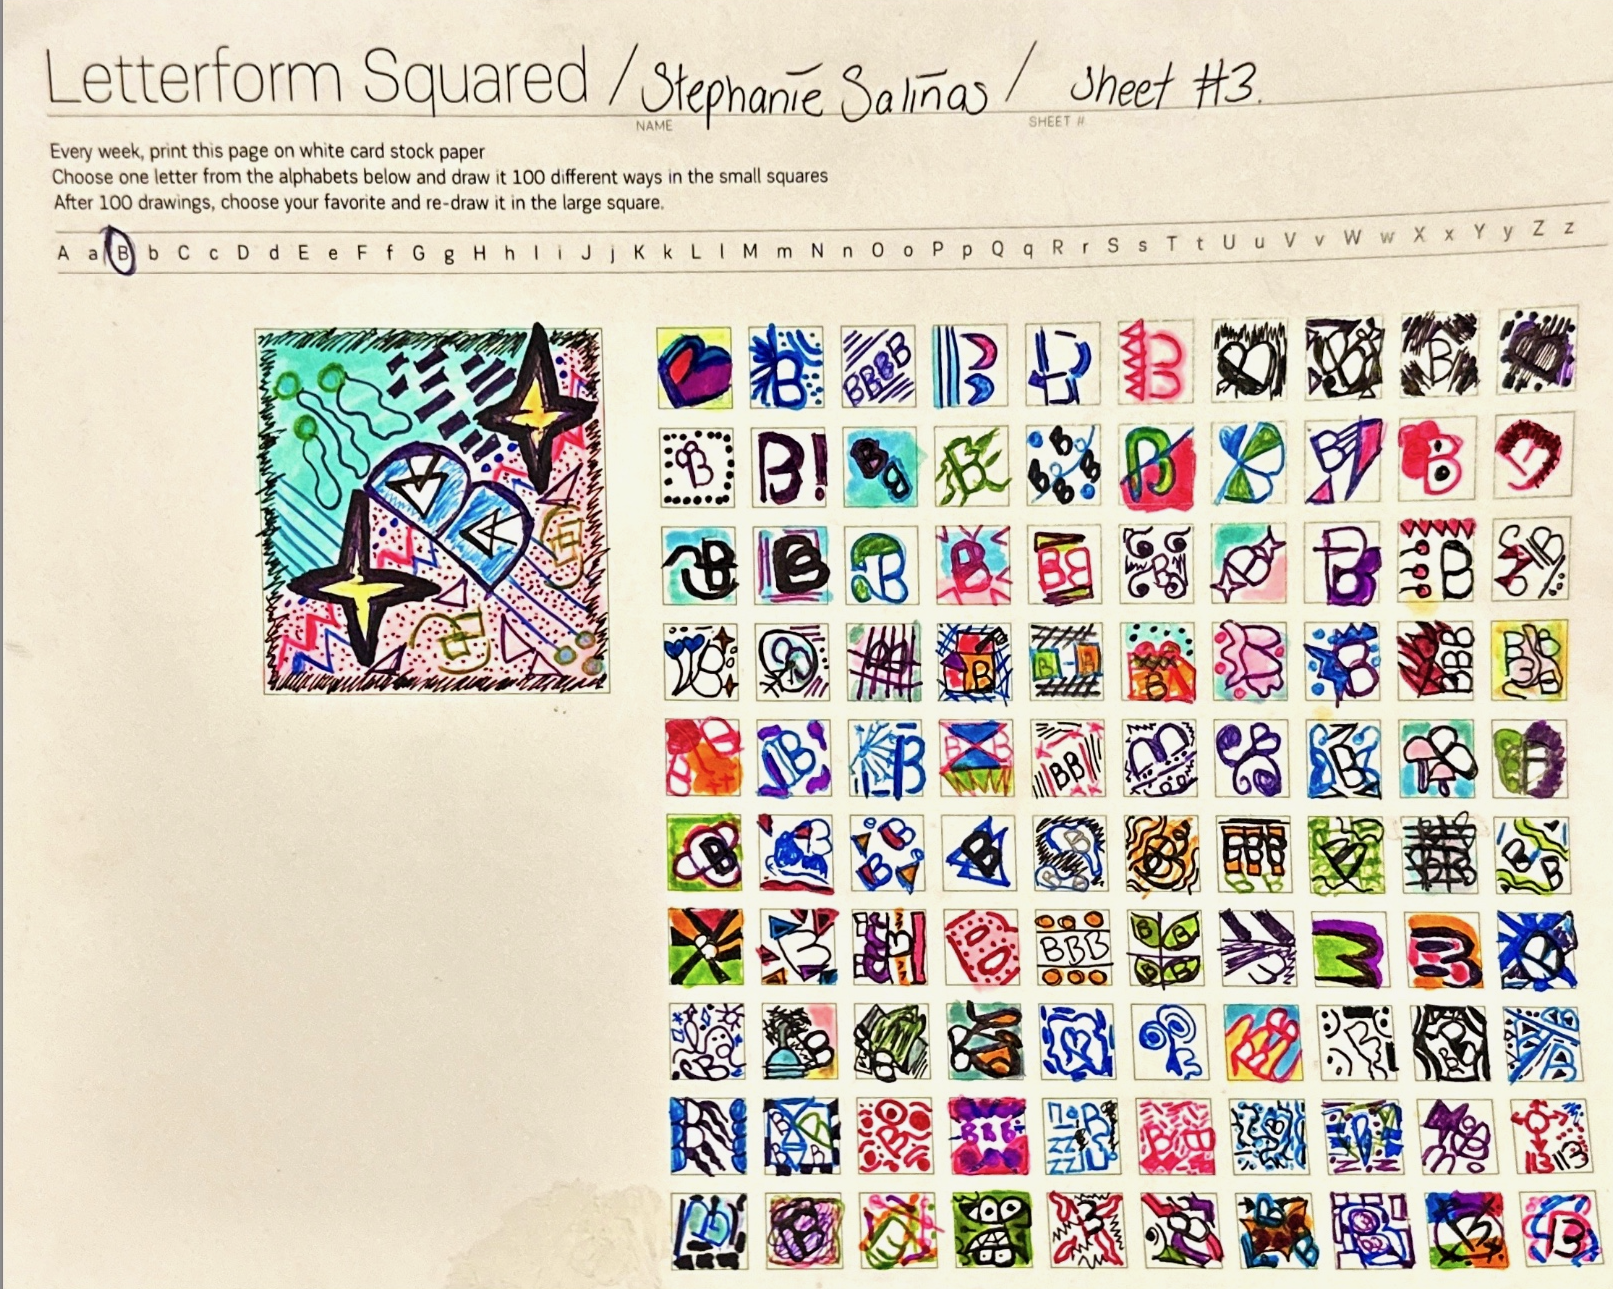 Letterform Squared / Stephanie Saliñas / Sheet #3.
NAME SHEET #
Every week, print this page on white card stock paper
Choose one letter from the alphabets below and draw it 100 different ways in the small squares
After 100 drawings, choose your favorite and re-draw it in the large square.
A a B b C c D d E e F f G g H h I i J j K k L l M m N n O o P p Q q R r S s T t U u V v W w X x Y y Z z